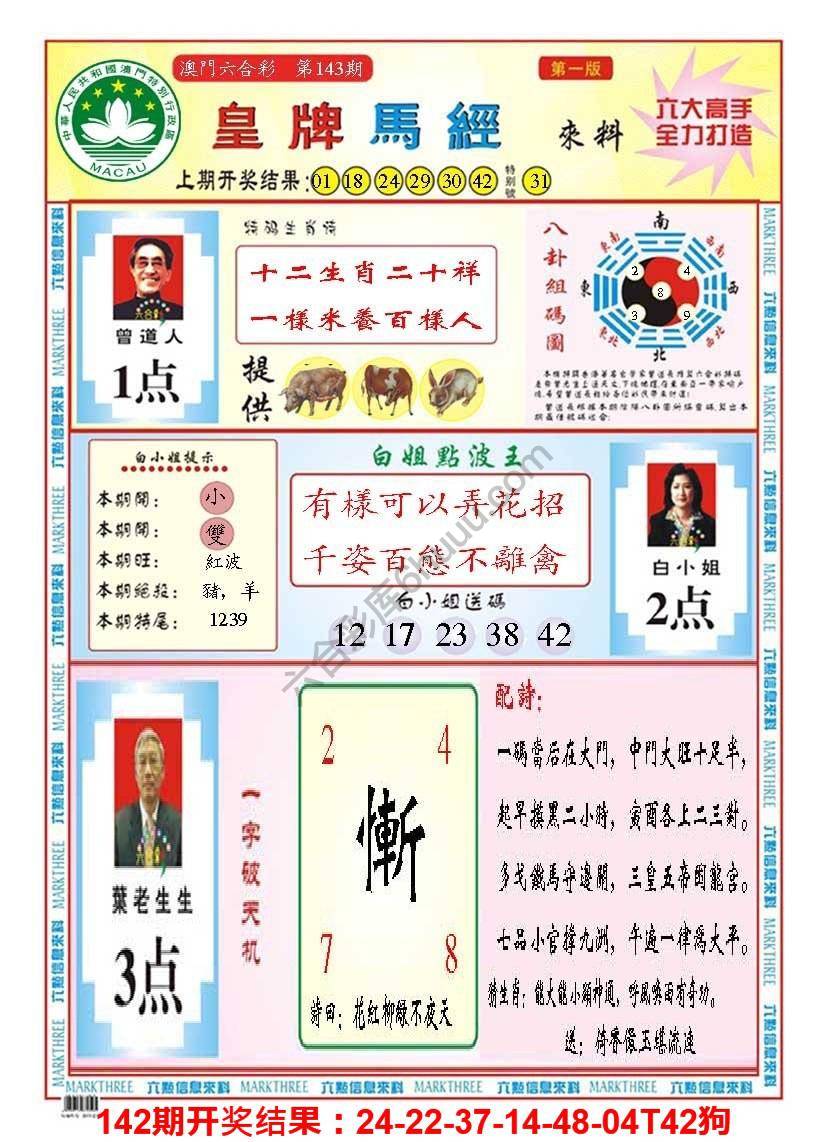 中華人民共和國澳門特別行政區
MACAU
澳門六合彩 第143期
第一版
皇牌馬經
來料
六大高手
全力打造
上期开奖结果: 01 18 24 29 30 42 特别號 31
特碼生肖詩
十二生肖二十祥
一樣米養百樣人
曾道人
1点
提供
八卦組碼圖
南
東南
西南
東
西
東北
西北
北
2 4
8
3 9
白小姐提示
本期開: 小
本期開: 雙
本期旺: 紅波
本期絕殺: 豬,羊
本期特尾: 1239
白姐點波王
有樣可以弄花招
千姿百態不離禽
白小姐送碼
12 17 23 38 42
白小姐
2点
葉老生生
3点
一字破天机
2 4
慚
7 8
詩曰:花紅柳綠不夜天
配詩:
一碼當后在大門,中門大旺十足半,
起早摸黑二小時,寅酉各上二三對。
多戈鐵馬守邊關,三皇五帝闖龍宫。
七品小官撐九洲,午遍一律爲太平。
猜生肖:能大能小顯神通,呼風喚雨有奇功。
送:倚香偎玉堪流連
MARKTHREE 六點信息來料
六合彩库6huuu.com
142期开奖结果：24-22-37-14-48-04T42狗